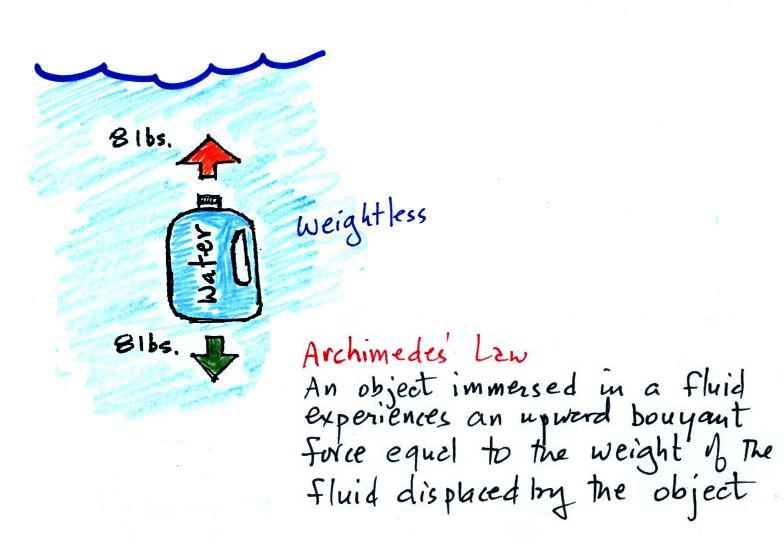 8 lbs.
Water
weightless
8 lbs.
Archimedes' Law
An object immersed in a fluid
experiences an upward bouyant
force equal to the weight of the
fluid displaced by the object